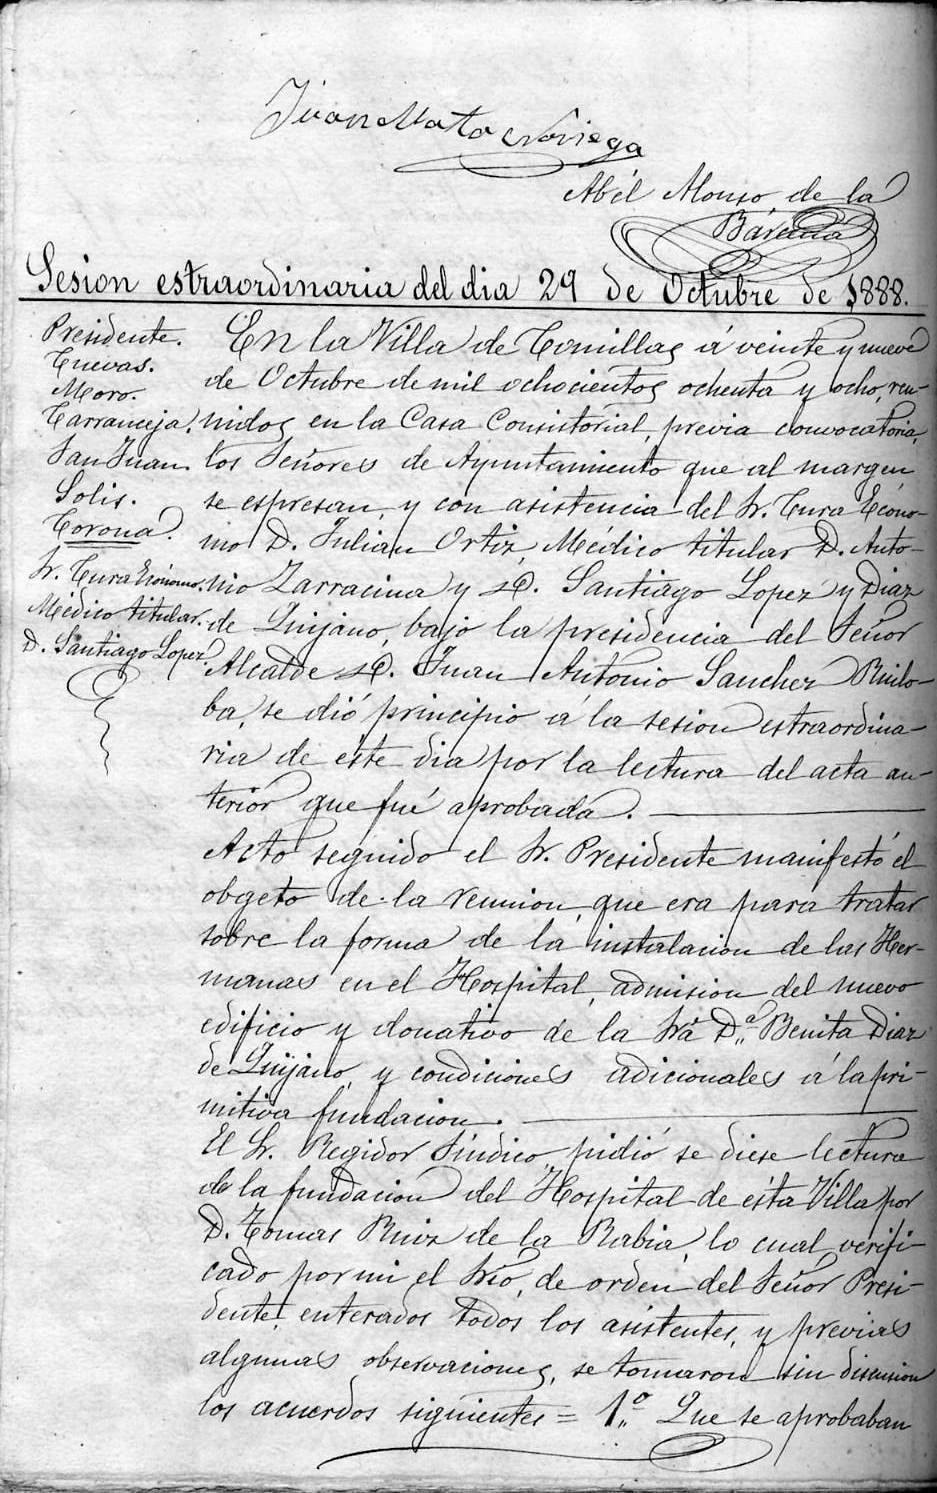 Juan Mata Noriega
Abél Alonso de la
Bárcena
Sesion estraordinaria del dia 29 de Octubre de 1888.
Presidente.
Cuevas.
Moro.
Carranceja.
San Juan.
Solis.
Corona.
Sr. Cura Ecónomo.
Médico titular.
D. Santiago Lopez.
En la Villa de Comillas á veinte y nueve
de Octubre de mil ochocientos ochenta y ocho, reu-
nidos en la Casa Consistorial, previa convocatoria,
los Señores de Ayuntamiento que al margen
se espresan, y con asistencia del Sr. Cura Ecóno-
mo D. Julian Ortiz, Médico titular D. Anto-
nio Zarracina y D. Santiago Lopez y Diaz
de Quijano, bajo la presidencia del Señor
Alcalde D. Juan Antonio Sanchez Ruilo-
ba, se dió principio á la sesion estraordina-
ria de este dia por la lectura del acta an-
terior que fué aprobada.
Acto seguido el Sr. Presidente manifestó el
obgeto de la reunion, que era para tratar
sobre la forma de la instalacion de las Her-
manas en el Hospital, admision del nuevo
edificio y donativo de la Srá D.ª Benita Diaz
de Quijano, y condiciones adicionales á la pri-
mitiva fundacion.
El Sr. Regidor Síndico, pidió se diese lectura
de la fundacion del Hospital de ésta Villa por
D. Tomas Ruiz de la Rabia, lo cual verifi-
cado por mi el Srio, de orden del Señor Presi-
dente, enterados todos los asistentes, y previas
algunas observaciones, se tomaron sin discusion
los acuerdos siguientes = 1.º Que se aprobaban